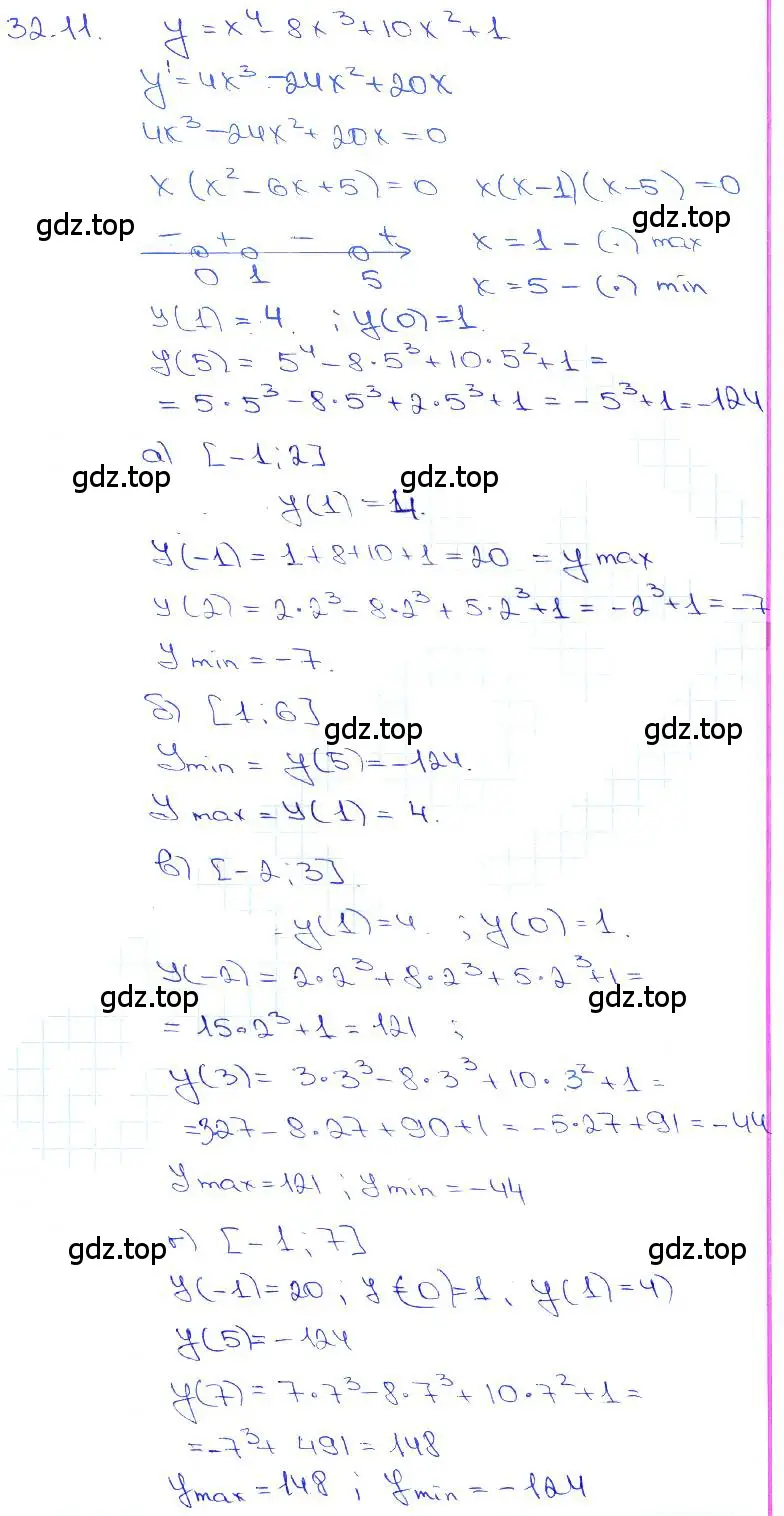 32.11. y = x⁴ - 8x³ + 10x² + 1
y' = 4x³ - 24x² + 20x
4x³ - 24x² + 20x = 0
x (x² - 6x + 5) = 0 x(x-1)(x-5) = 0
gdz.top gdz.top
- + - + x = 1 - (·) max
0 1 5 x = 5 - (·) min
y(1) = 4. ; y(0) = 1.
y(5) = 5⁴ - 8·5³ + 10·5² + 1 =
= 5·5³ - 8·5³ + 2·5³ + 1 = -5³ + 1 = -124
а) [-1; 2]
gdz.top gdz.top
y(1) = 4.
y(-1) = 1 + 8 + 10 + 1 = 20 = y max
y(2) = 2·2³ - 8·2³ + 5·2³ + 1 = -2³ + 1 = -7
y min = -7.
б) [1; 6]
gdz.top gdz.top
y min = y(5) = -124.
y max = y(1) = 4.
в) [-2; 3]
y(1) = 4. ; y(0) = 1.
y(-2) = 2·2³ + 8·2³ + 5·2³ + 1 =
gdz.top gdz.top
= 15·2³ + 1 = 121 ;
y(3) = 3·3³ - 8·3³ + 10·3² + 1 =
= 327 - 8·27 + 90 + 1 = -5·27 + 91 = -44
y max = 121 ; y min = -44
gdz.top г) [-1; 7] gdz.top
y(-1) = 20 ; y(0) = 1 ; y(1) = 4)
y(5) = -124
y(7) = 7·7³ - 8·7³ + 10·7² + 1 =
= -7³ + 491 = 148
y max = 148 ; y min = -124